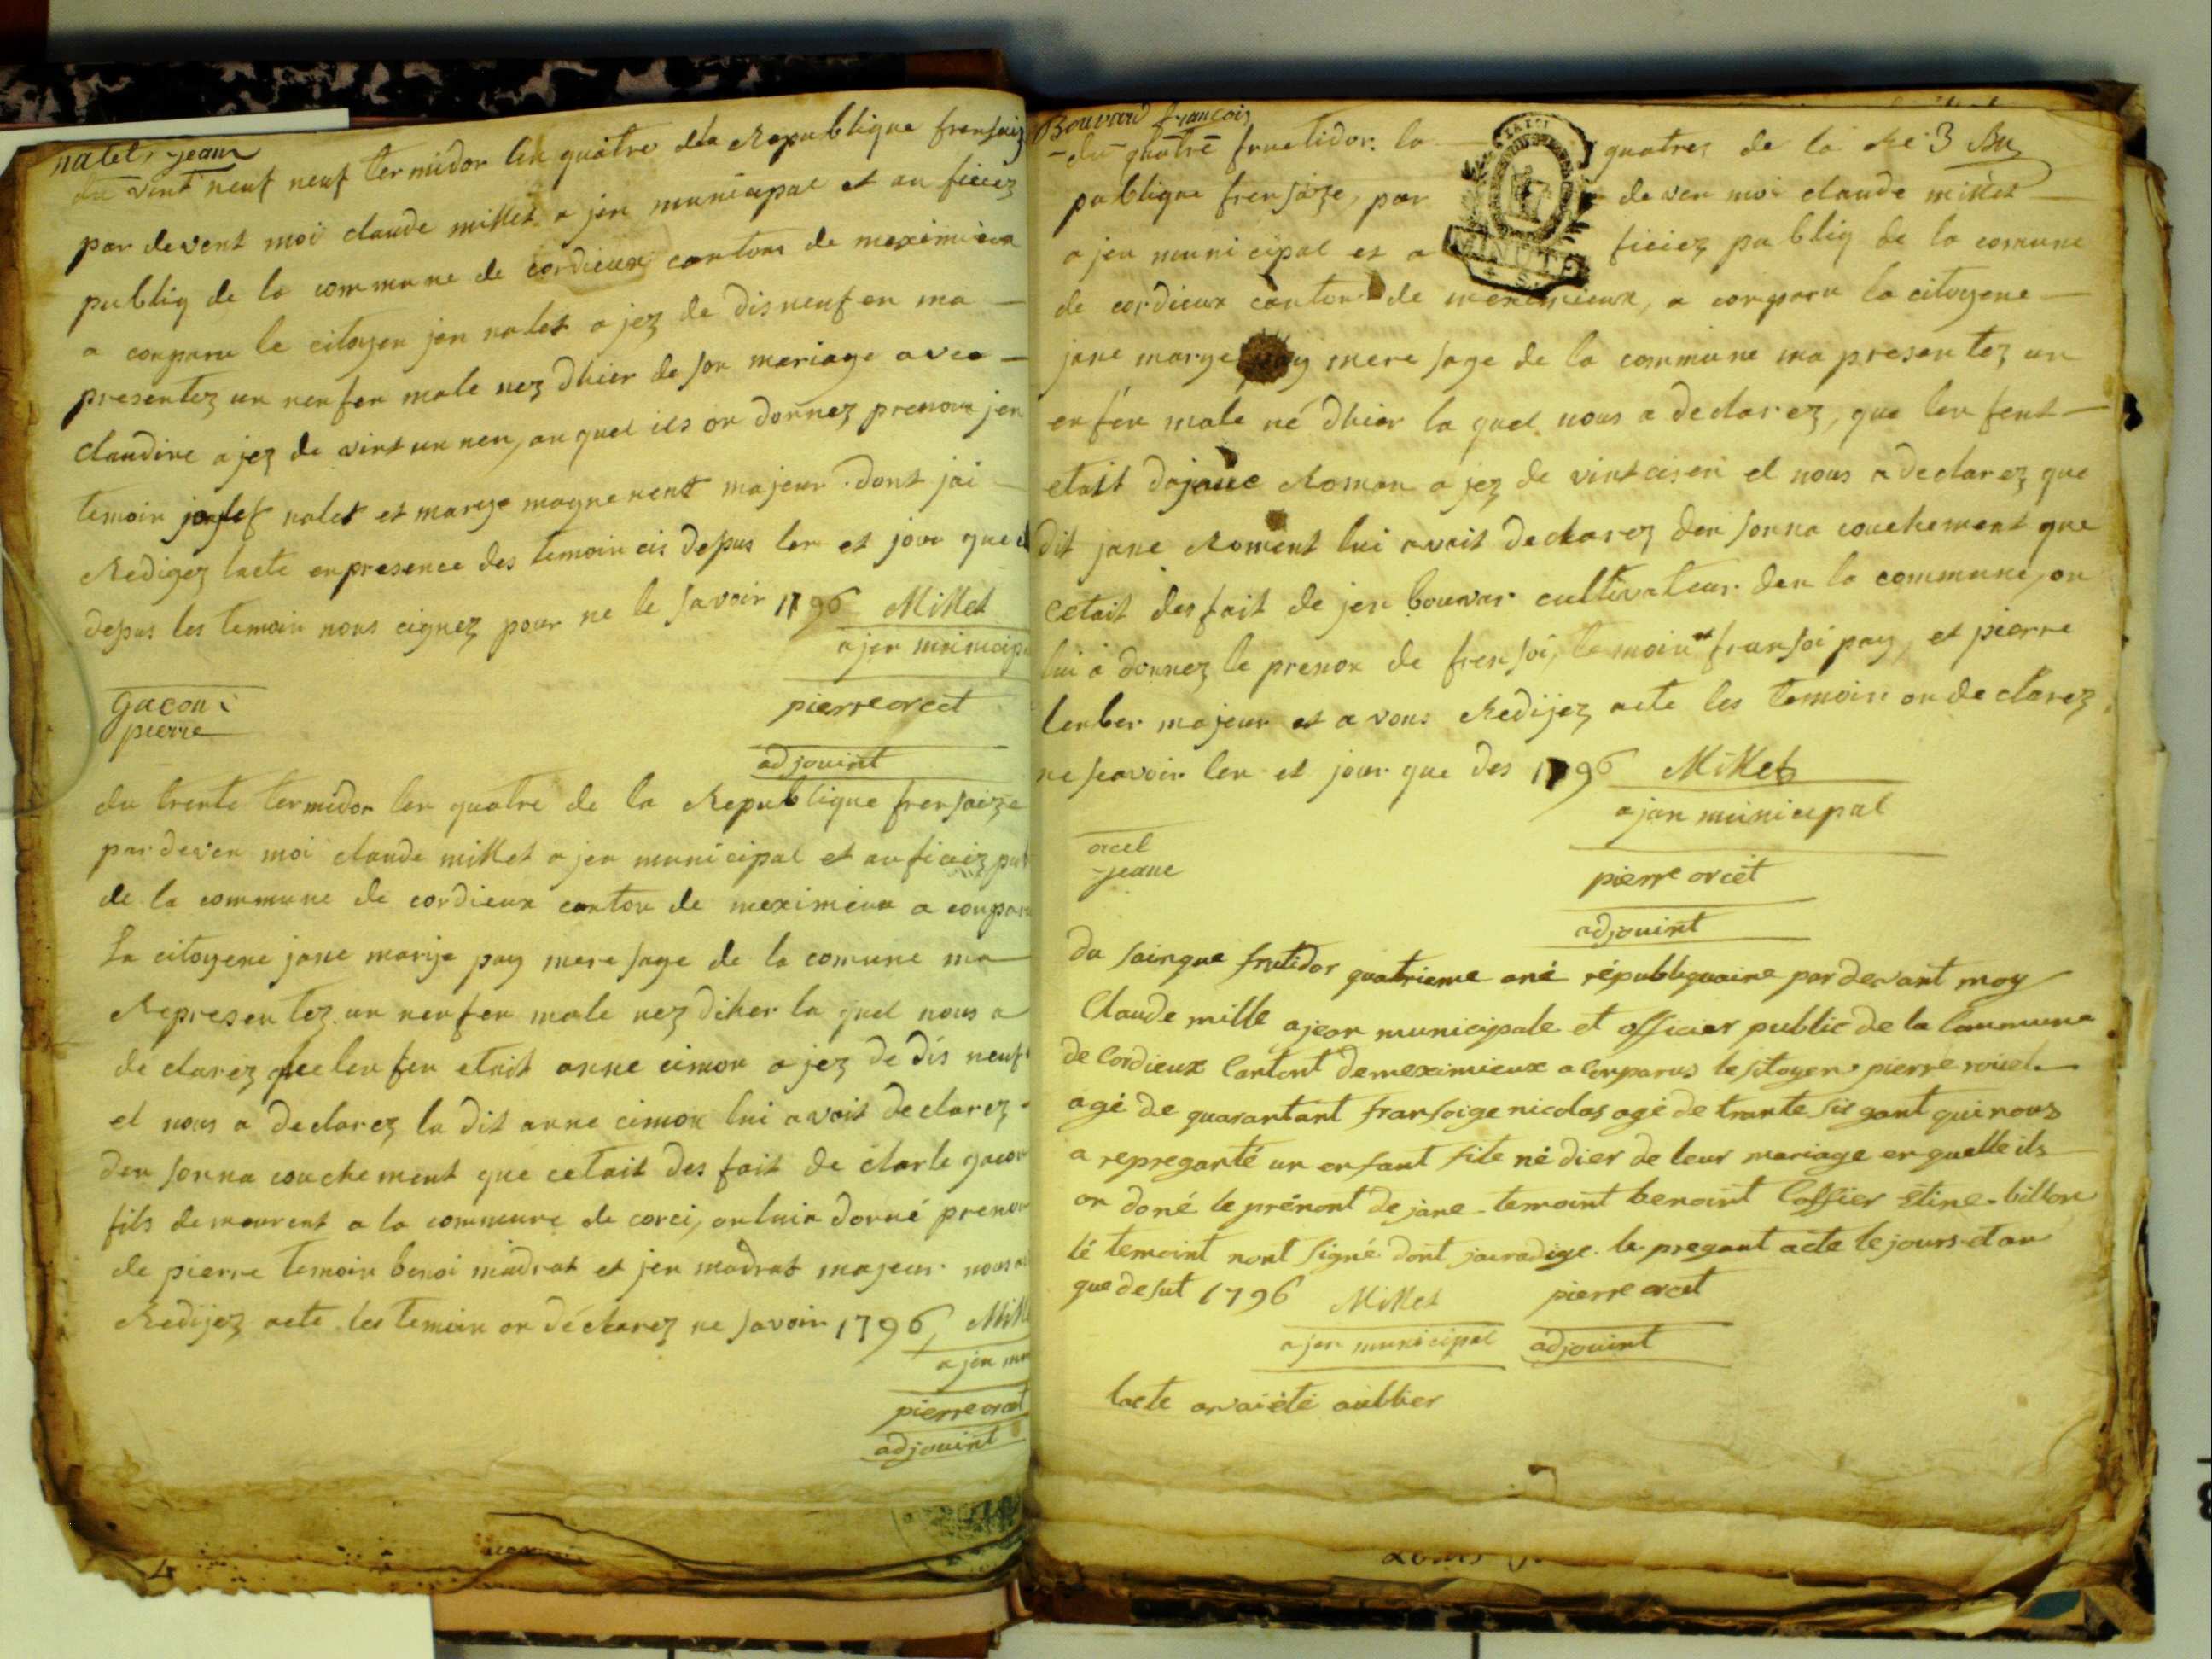 natel, jean
du vint neuf neuf termidor len quatre dela Republique fransaiz
par devent moi claude millet a jen municipal et au ficiez
publiq de la commune de cordieux contons de meximieu
a conparu le citoyen jen nalet a jez de disneuf en ma
presentez un nenfen male nez dhier de son mariage avec
claudine a jez de vint un nen, au quel ils on donnez prenon jen
temoin josef nalet et marye magne nent majeur. dont jai
Redigez lacte enpresence des temoin cis depus len et jour que
depus les temoin nons cignez pour ne le savoir 1796 Millet
ajen municip
pierre orcet
adjouint
gacon
pierre
du trente termidor len quatre de la Republique fransaize
par deven moi claude millet a jen municipal et au ficiez pub
de la commune de cordieux conton de meximieux a conparu
La citoyene jane marye pay mere sage de la comune ma
Representez un nenfen male nez diher la quel nous a
déclarez que lenfen etait anne cimon a jez de dis neuf
el nous a declarez la dit anne cimon lui avait declarez
den sonna couchement que cetait des fait de clarle gacon
fils demeurent a la commune de corci, on luia donné prenon
de pierre temoin benoi madrat et jen madrat majeur nous a
Redijez acte les temoin on déclarez ne savoir 1796 Mill
a jen mu
pierre orcet
adjouint
Bouvard francois
du quatre fructidor la quatres de la Re 3
publique fransaize, par de ven moi claude millet
a jen municipal et a ficiez publiq de la comune
de cordieux canton de meximieux, a conparu la citoyene
jane marye pay mere sage de la commune ma presentez un
enfen male né dhier la quel nous a declarez, que lenfent
etait dejane Roman a jez de vint cisen el nous a declarez que
dit jane Roment lui avait declarez den sonna couchement que
cetait des fait de jen bouvar cultivateur den la commune, on
lui a donnez le prenon de fransoi, temoin fransoi pay, et pierre
lenber majeur et a vons Redijez acte les temoin on declarez
ne scavoir len et jour que des 1796 Millet
ajan municipal
pierre orcet
adjouint
jeane
du sainque frutidor quatrieme ané républiquaine par devant moy
Claude mille ajean municipale et officier public de la Commune
de Cordieux Cantont de meximieux a Conparus le sitoyen pierre
agé de quarantant fransoige nicolas agé de trante sis gant qui nous
a repreganté un enfant file né dier de leur mariage en quelle ils
on doné le prénont de jane temoint benoint Coffier étine billon
lé temoint nont signé dont jairadige le pregant acte le jours et an
que desut 1796 Millet pierre orcet
a jen municipal adjouint
lacte avaiété aublier